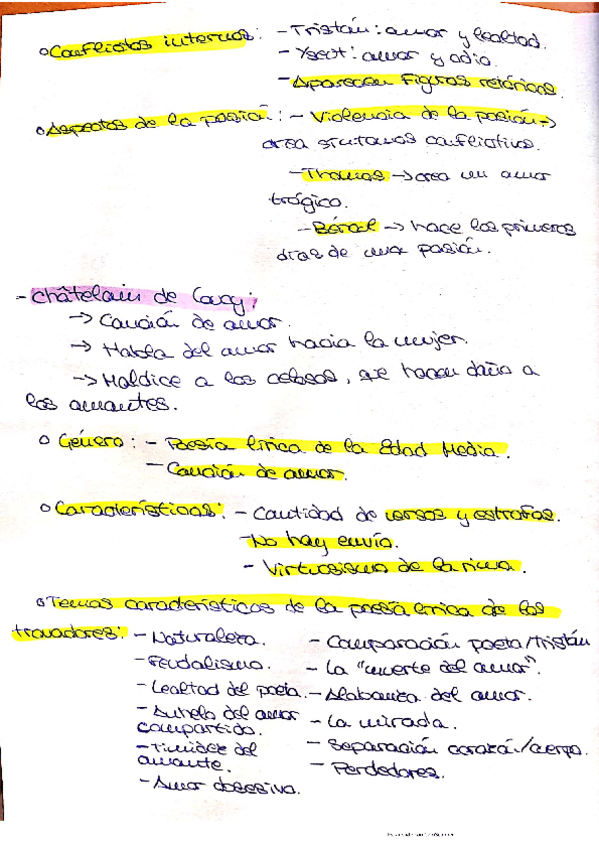 o Conflictos internos: - Tristán: amor y lealtad.
- Yseut: amor y odio.
- Aparecen figuras retóricas.
o Aspectos de la pasión: - Violencia de la pasión ->
crea situaciones conflictivas.
- Thomas -> crea un amor
trágico.
- Béroul -> hace los primeros
días de una pasión.
- Châtelain de Coucy:
-> Canción de amor.
-> Habla del amor hacia la mujer.
-> Maldice a los celosos, que hacen daño a
los amantes.
o Género: - Poesía lírica de la Edad Media.
- Canción de amor.
o Características: - Cantidad de versos y estrofas.
- No hay envío.
- Virtuosismo de la rima.
o Temas característicos de la poesía lírica de los
trovadores: - Naturaleza.
- Feudalismo.
- Lealtad del poeta.
- Anhelo del amor
compartido.
- Timidez del
amante.
- Amor obsesivo.
- Comparación poeta/Tristán
- La "muerte del amor".
- Alabanza del amor.
- La mirada.
- Separación corazón/cuerpo.
- Perdedores.